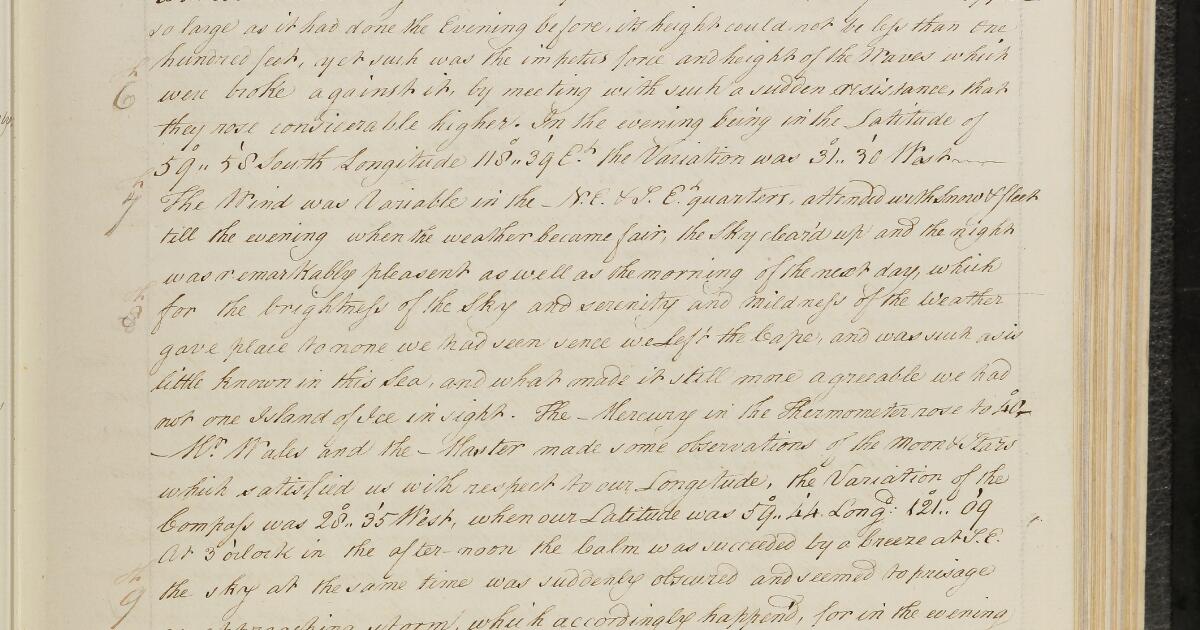 so large as it had done the Evening before, its height could not be less than one
hundred feet, yet such was the impetus force and height of the Waves which
6th
were broke against it, by meeting with such a sudden resistance, that
they rose considerable higher. In the evening being in the Latitude of
59°.. 58' South Longitude 118°.. 39' Et the Variation was 31°.. 30' West
7th
The Wind was Variable in the N.E. & S.Et quarters, attended with snow & sleet
till the evening when the weather became fair, the sky clear'd up and the night
was remarkably pleasent as well as the morning of the next day, which
8th
for the brightness of the sky and serenity and mildness of the weather
gave place to none we had seen sence we left the Cape, and was such as is
little known in this Sea, and what made it still more agreeable we had
not one Island of Ice in sight. The Mercury in the Thermometer rose to 40°
Mr Wales and the Master made some observations of the Moon & Stars
which satisfied us with respect to our Longitude, the Variation of the
Compass was 28°.. 35' West, when our Latitude was 59°.. 44' Longd: 121°.. 09'
At 3 o'clock in the after-noon the Calm was succeeded by a breeze at S.E.
the sky at the same time was suddenly obscured and seemed to prisage
9th
approaching storm, which accordingly happend, for in the evening